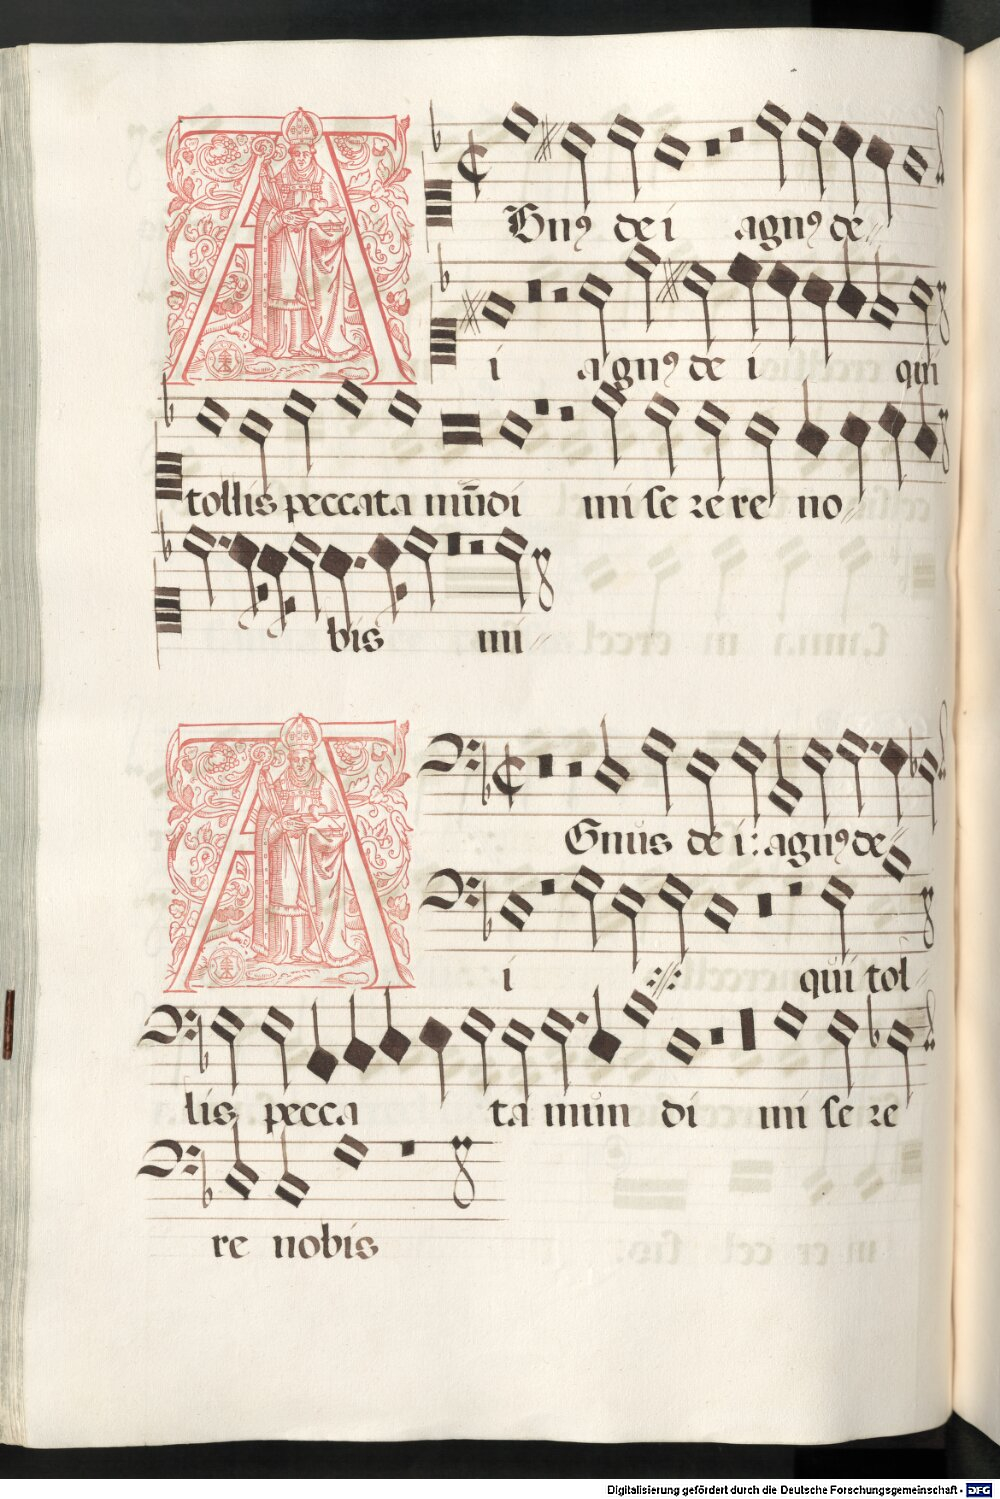 Gnꝰ de i agnꝰ de
i agnꝰ de i qui
tollis peccata mūdi mi se re re no
bis mi
Gnus de i : agnꝰ de
i qui tol
lis pecca ta mun di mi se re
re nobis
Digitalisierung gefördert durch die Deutsche Forschungsgemeinschaft - DFG